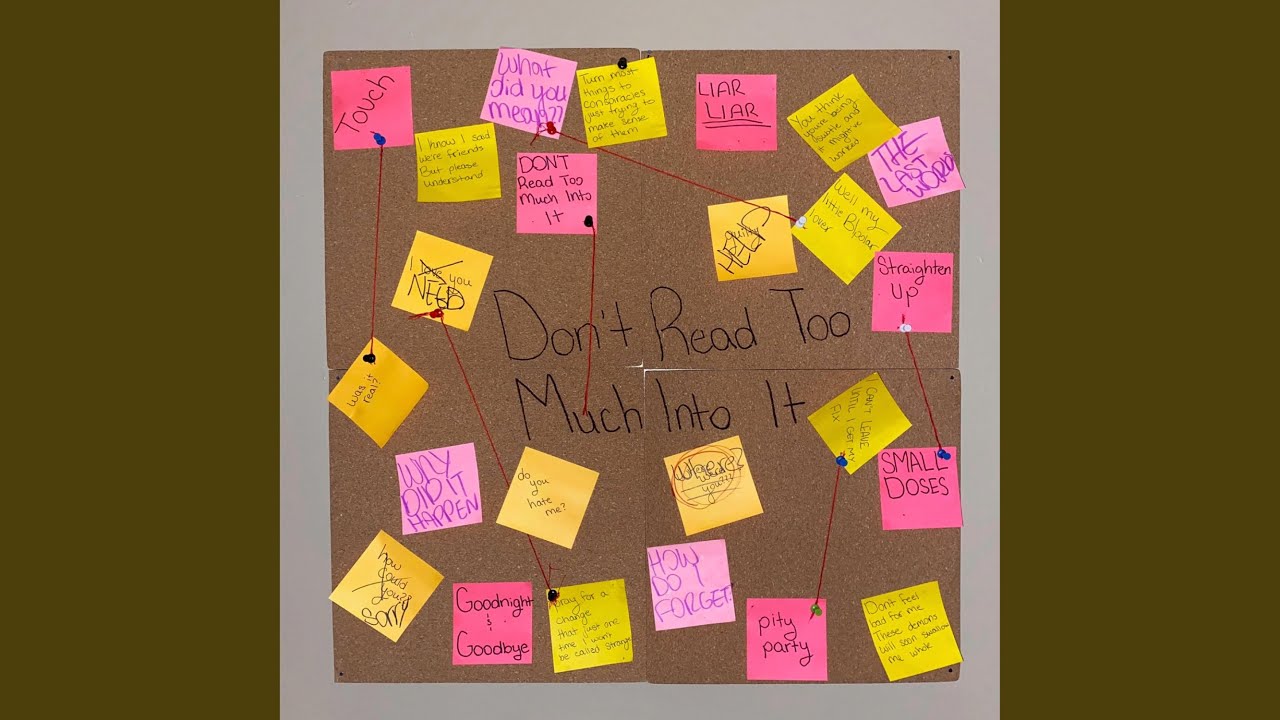 Touch
What
did you
mean??
Turn most
things to
consparacies
Just trying to
make sense
of them
LIAR
LIAR
You think
you're being
and
it might've
worked
THE
LAST
WORD
I know I said
were friends
But please
understand
DONT
Read Too
Much Into
It
guilty
HELP
Well my
little Bipolar
lover
Straighten
Up
I love you
NEED
Don't Read Too
Much Into It
was it
real?
I CAN'T LEAVE
UNTIL I GET MY
FIX
WHY
DID IT
HAPPEN
do
you
hate
me?
Where
were
you???
SMALL
DOSES
how
could
you??
Sorry
Goodnight
&
Goodbye
Pray for a
change
that just one
time I won't
be called strange
HOW
DO I
FORGET
pity
party
Dont feel
bad for me
These demons
will soon swallow
me whole